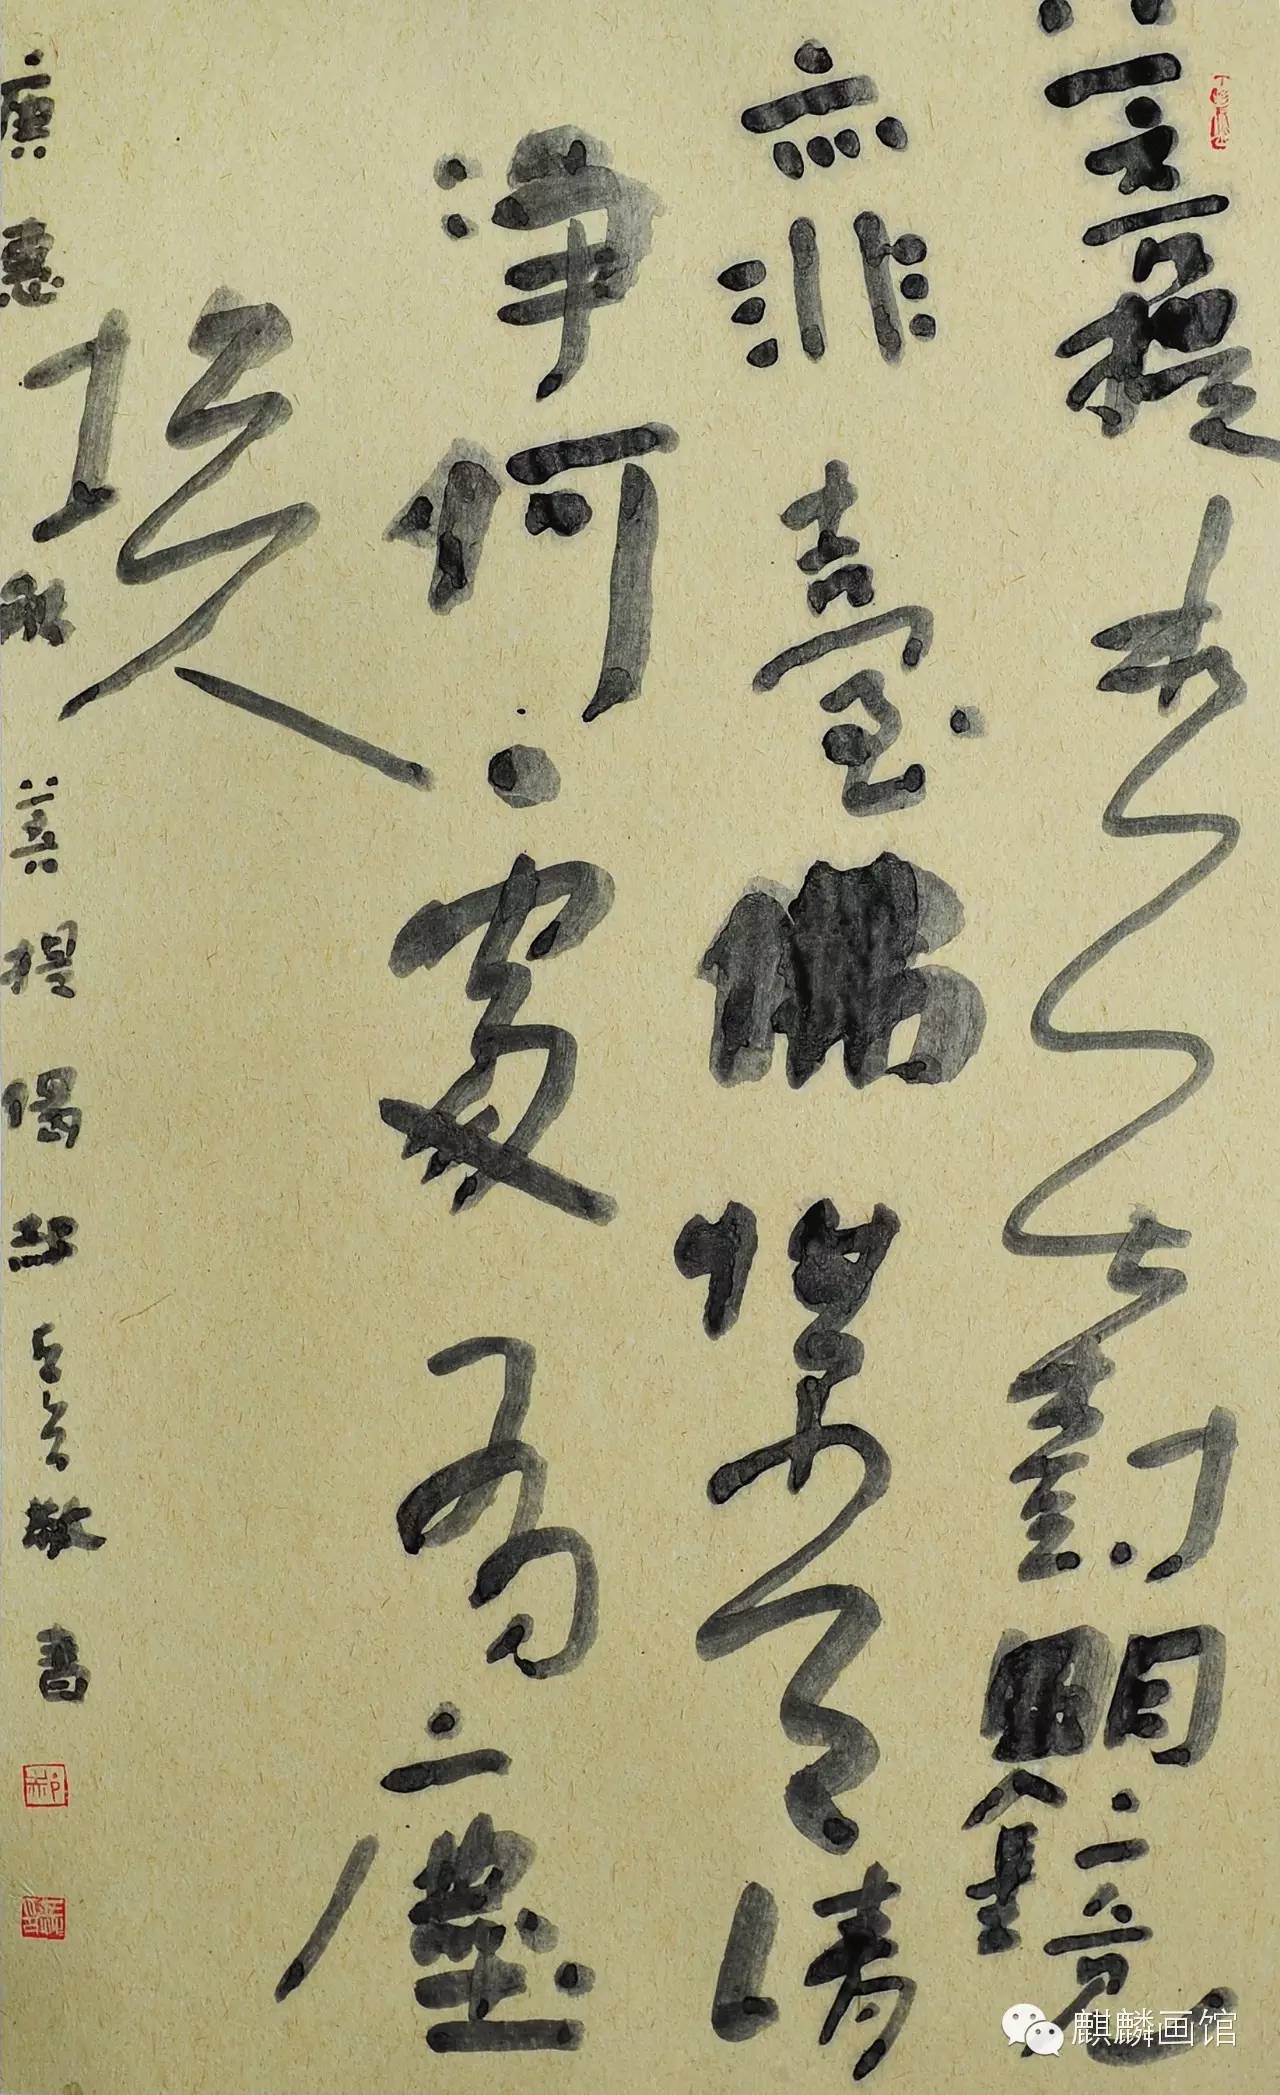 菩提本无樹明鏡
亦非臺佛性常清
淨何處有塵
埃
唐惠能菩提偈敬書
麒麟画馆